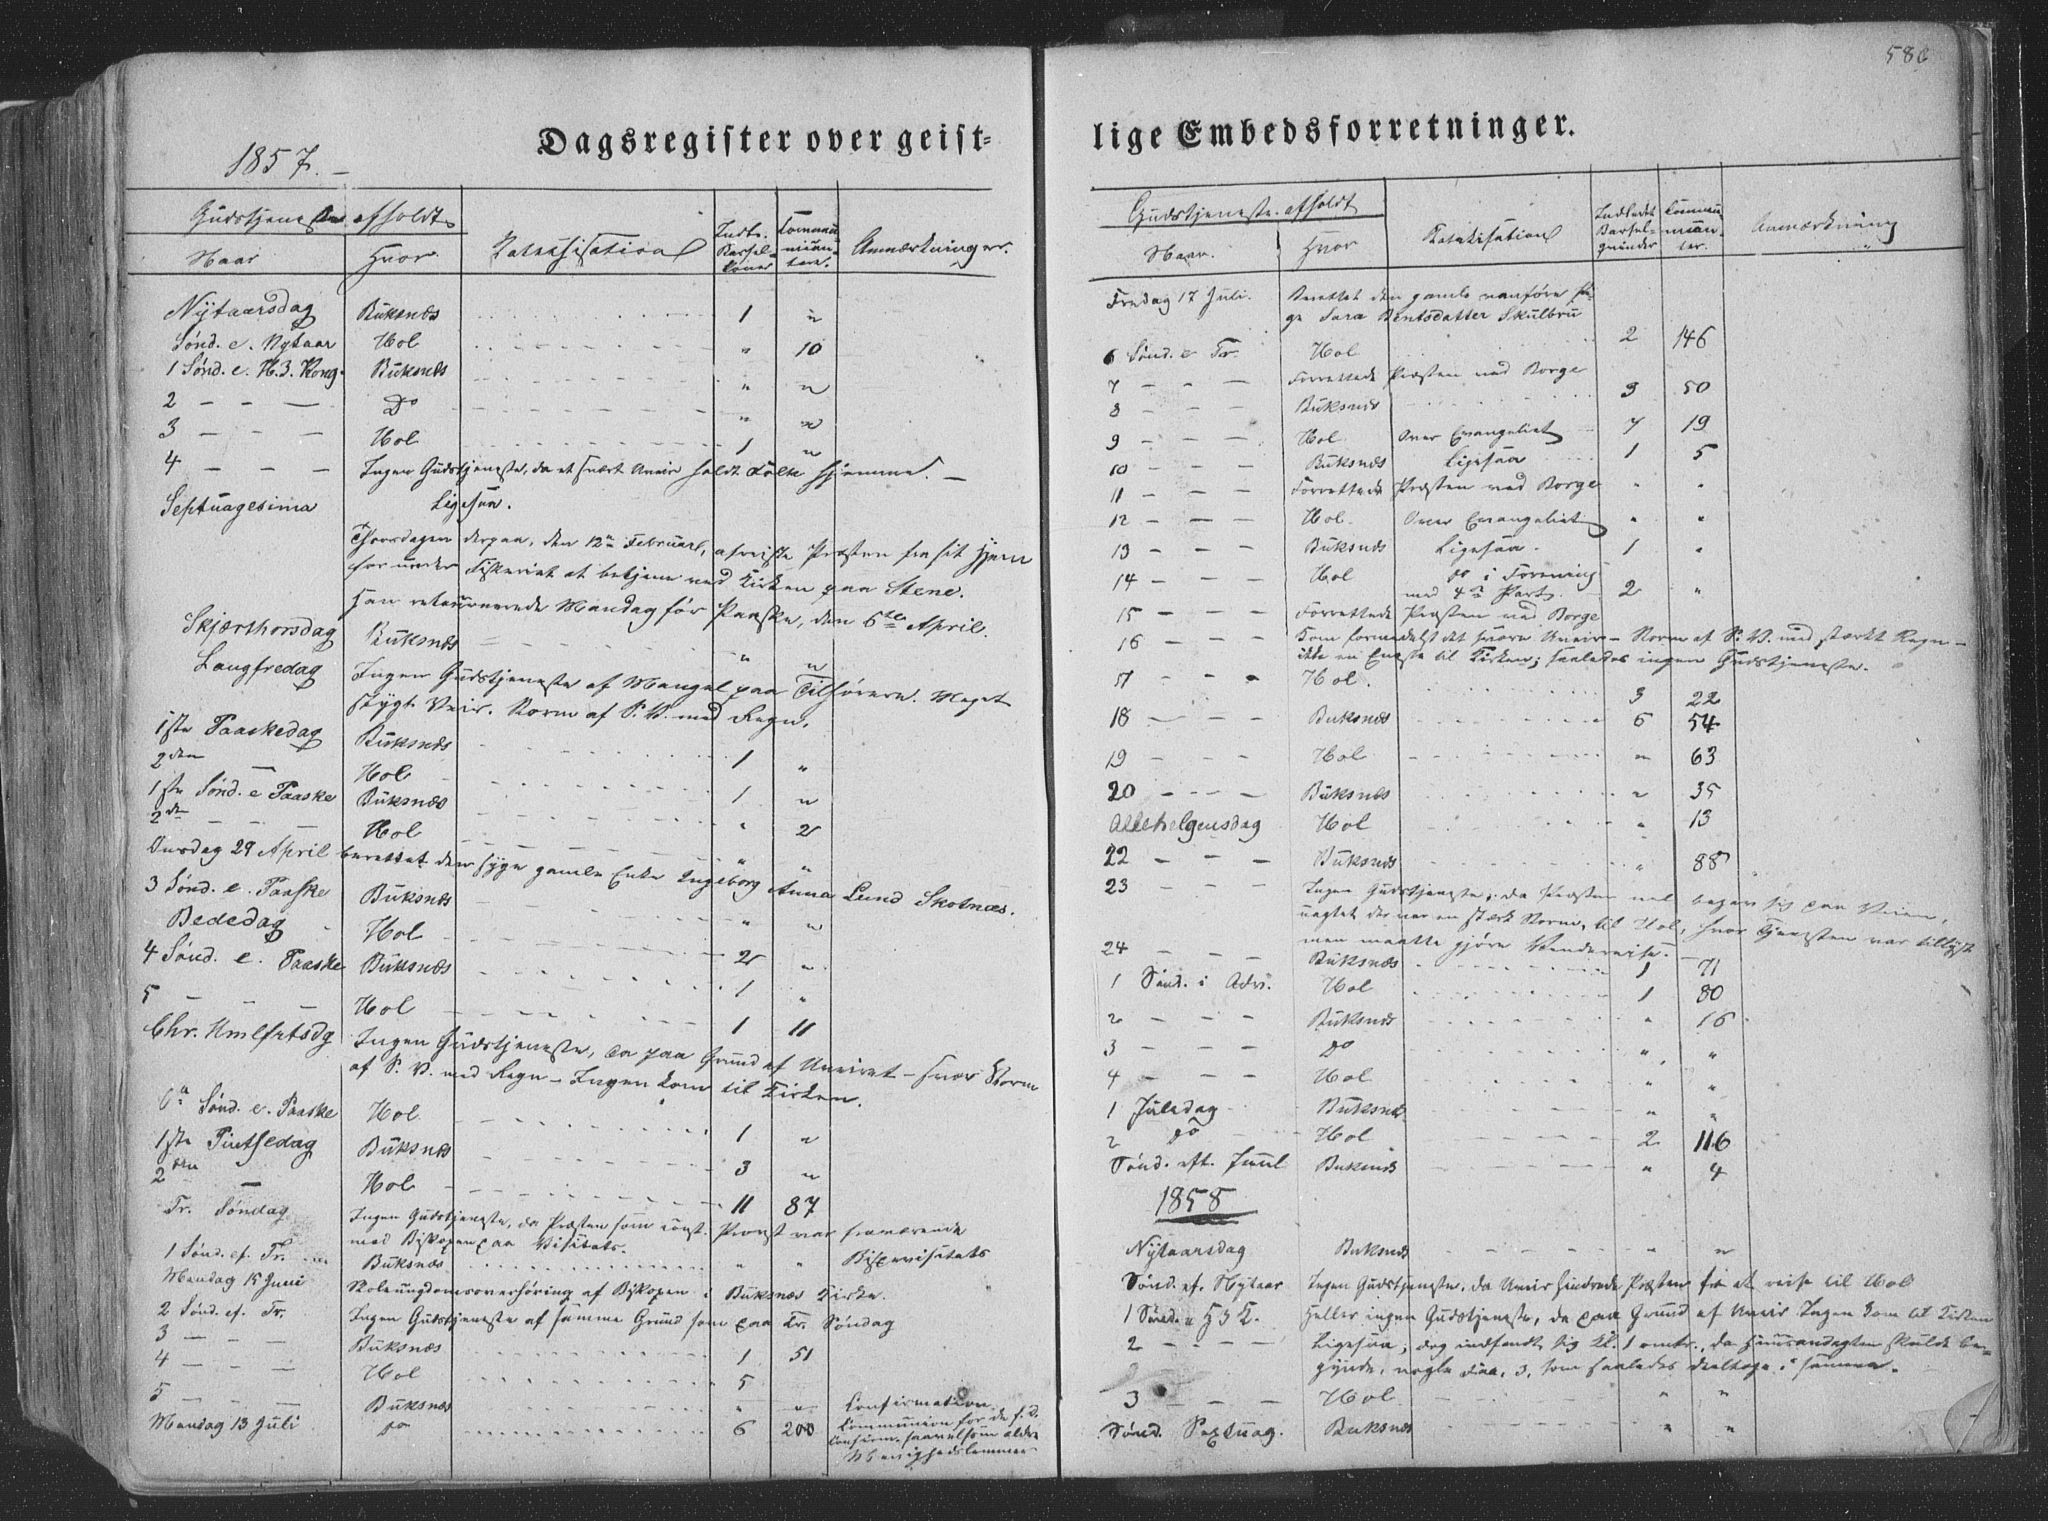 580
Dagsregister over geist-
1857. –
Gudstjeneste afholdt
Naar Hvor Katechisation Indl. Barselkoner Communicantere. Anmærkninger.
Nÿtaarsdag Buksnæs 1 "
Sønd. e. Nytaar Hol " 10
1 Sønd. e. H.3. Kong. Buksnæs " "
2 – – – Do " "
3 – – – Hol 1 "
4 – – – Ingen Gudstjeneste, da et svært Uveir holdt Folk hjemme. –
Septuagesima Ligesaa.
Thorsdagen derpaa, den 12te Februar, afreiste Præsten fra sit Hjem
for under Fiskeriet at betjene ved Kirken paa Stene.
Han retournerede Mandag før Paaske, den 6te April.
Skjærthorsdag Buksnæs " "
Langfredag Ingen Gudstjeneste af Mangel paa Tilhørere. Meget
stygt Veir. Storm af S. V. med Regn.
1ste Paaskedag Buksnæs 1 "
2den – Hol 1 "
1ste Sønd. e Paaske Buksnæs " 2
2den – – Hol " "
Onsdag 29 April berettet den syge gamle Enke Ingeborg Anna Lund Skotnæs.
3 Sønd. e. Paaske Buksnæs " "
Bededag Hol 2 "
4 Sønd. e. Paaske Buksnæs 1 "
5 – Hol 1 11
Chr. Hmlfrtsdg Ingen Gudstjeneste, da paa Grund af Uveiret – svær Storm
af S. V. med Regn – Ingen kom til Kirken.
6te Sønd. e. Paaske Hol 1 "
1ste Pintsedag Buksnæs 3 "
2den – Hol 11 87
Tr. Søndag Ingen Gudstjeneste, da Præsten som const. Provst var fraværende
med Biskopen paa Visitats.
1 Sønd. ef. Tr. Buksnæs " " Bispevisitats
Mandag 15 Juni Skoleungdomsoverhøring af Biskopen i Buksnæs Kirke.
2 Sønd. ef. Tr. Ingen Gudstjeneste af samme Grund som paa Tr. Søndag
3 – – – Buksnæs 1 51
4 – – Hol 5
5 – – Buksnæs " " Confirmation
Mandag 13 Juli do 6 200 Communion for de s. d.
Confirm. saavelsom ældre
Menighedslemmer
lige Embedsforretninger.
Gudstjeneste afholdt
Naar. Hvor Katekisation Indledet Barselqvinder Communicanter. Anmærkning
Fredag 17 Juli. Berettet den gamle vanføre Pige
Sara Bentsdatter Skulbru
6 Sønd. e Tr. Hol 2 146
7 – – – Forrettede Præsten ved Borge
8 – – – Buksnæs 3 50
9 – – – Hol Over Evangeliet 7 19
10 – – – Buksnæs Ligesaa 1 5
11 – – – Forrettede Præsten ved Borge " "
12 – – – Hol. Over Evangeliet " "
13 – – – Buksnæs Ligesaa. 1 "
14 – – – Hol do i Forening
med 4de Part. 2 "
15 – – – Forrettede Præsten ved Borge
16 – – – Kom formedelst det svære Uveir – Storm af S. V. med stærkt Regn –
ikke en Eneste til Kirken; saaledes ingen Gudstjeneste.
17 – – – Hol. 3 22
18 – – – Buksnæs 6 54
19 – – – Hol " 63
20 – – – Buksnæs " 35
Allehelgensdag Hol " 13
22 – – – Buksnæs " 88
23 – – – Ingen Gudstjeneste; da Præsten vel begav sig paa Veien,
uagtet der var en stærk Storm, til Hol, hvor Tjenesten var tillyst
men maatte gjøre Vendereise. –
24 – – – Buksnæs 1 71
1 Sønd. i Adv. Hol 1 80
2 – – – Buksnæs " 16
3 – – – Do " "
4 – – – Hol " "
1 Juledag Buksnæs " "
2 do Hol 2 116
Sønd. eft. Juul Buksnæs " 4
1858
Nytaarsdag Buksnæs " "
Sønd. ef. Nytaar Ingen Gudstjeneste, da Uveir hindrede Præsten fra at reise til Hol
1 Sønd. e H 3 K. Heller ingen Gudstjeneste, da paa Grund af Uveir Ingen kom til Kirken
2 – – – Ligesaa; dog indfandt sig Kl. 1 omtr., da Huusandagten skulde be-
gynde, nogle Faa, 3, som saaledes deeltoge i samme.
3 – – – Hol " "
Sønd. Septuag. Buksnæs " "